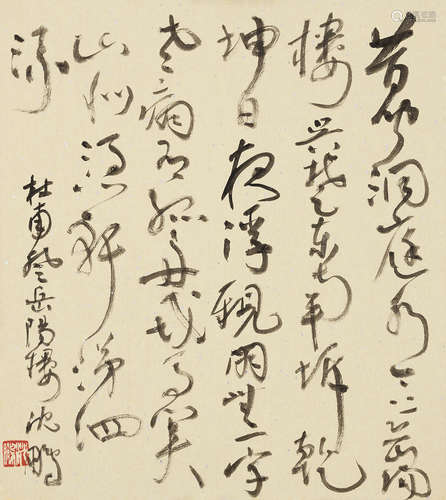 昔闻洞庭水今上岳陽
樓吳楚东南坼乾
坤日夜浮親朋無一字
老病有孤舟戎马关
山北凭軒涕泗
流
杜甫登岳陽樓 沈鹏